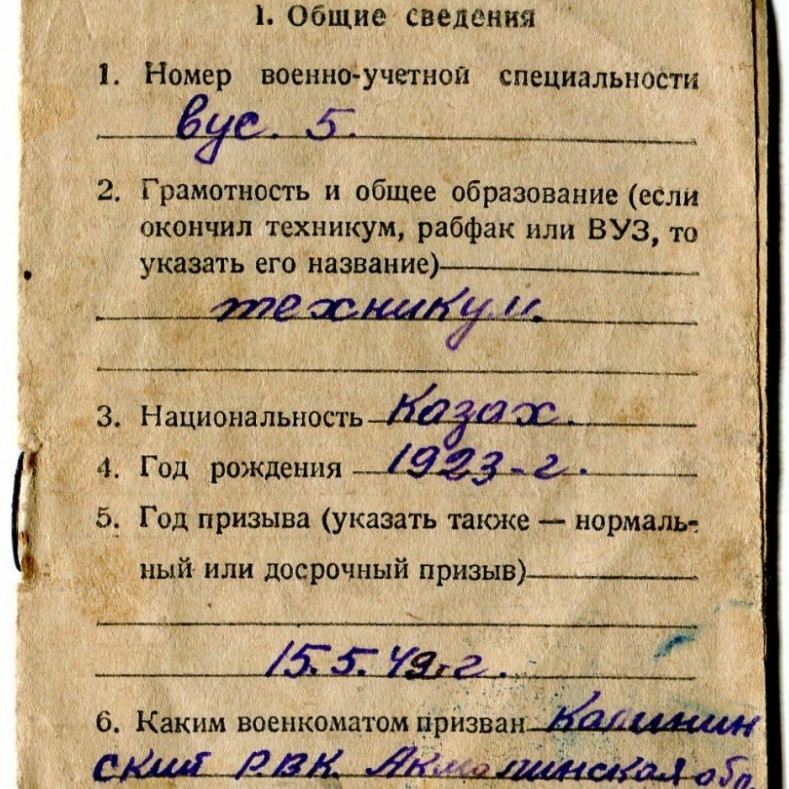 1. Общие сведения
1. Номер военно-учетной специальности
вус. 5.
2. Грамотность и общее образование (если
окончил техникум, рабфак или ВУЗ, то
указать его название)
техникум.
3. Национальность Казах.
4. Год рождения 1923-г.
5. Год призыва (указать также — нормаль-
ный или досрочный призыв)
15.5.49.г.
6. Каким военкоматом призван Калинин
ский Р.В.К. Акмолинская обл.